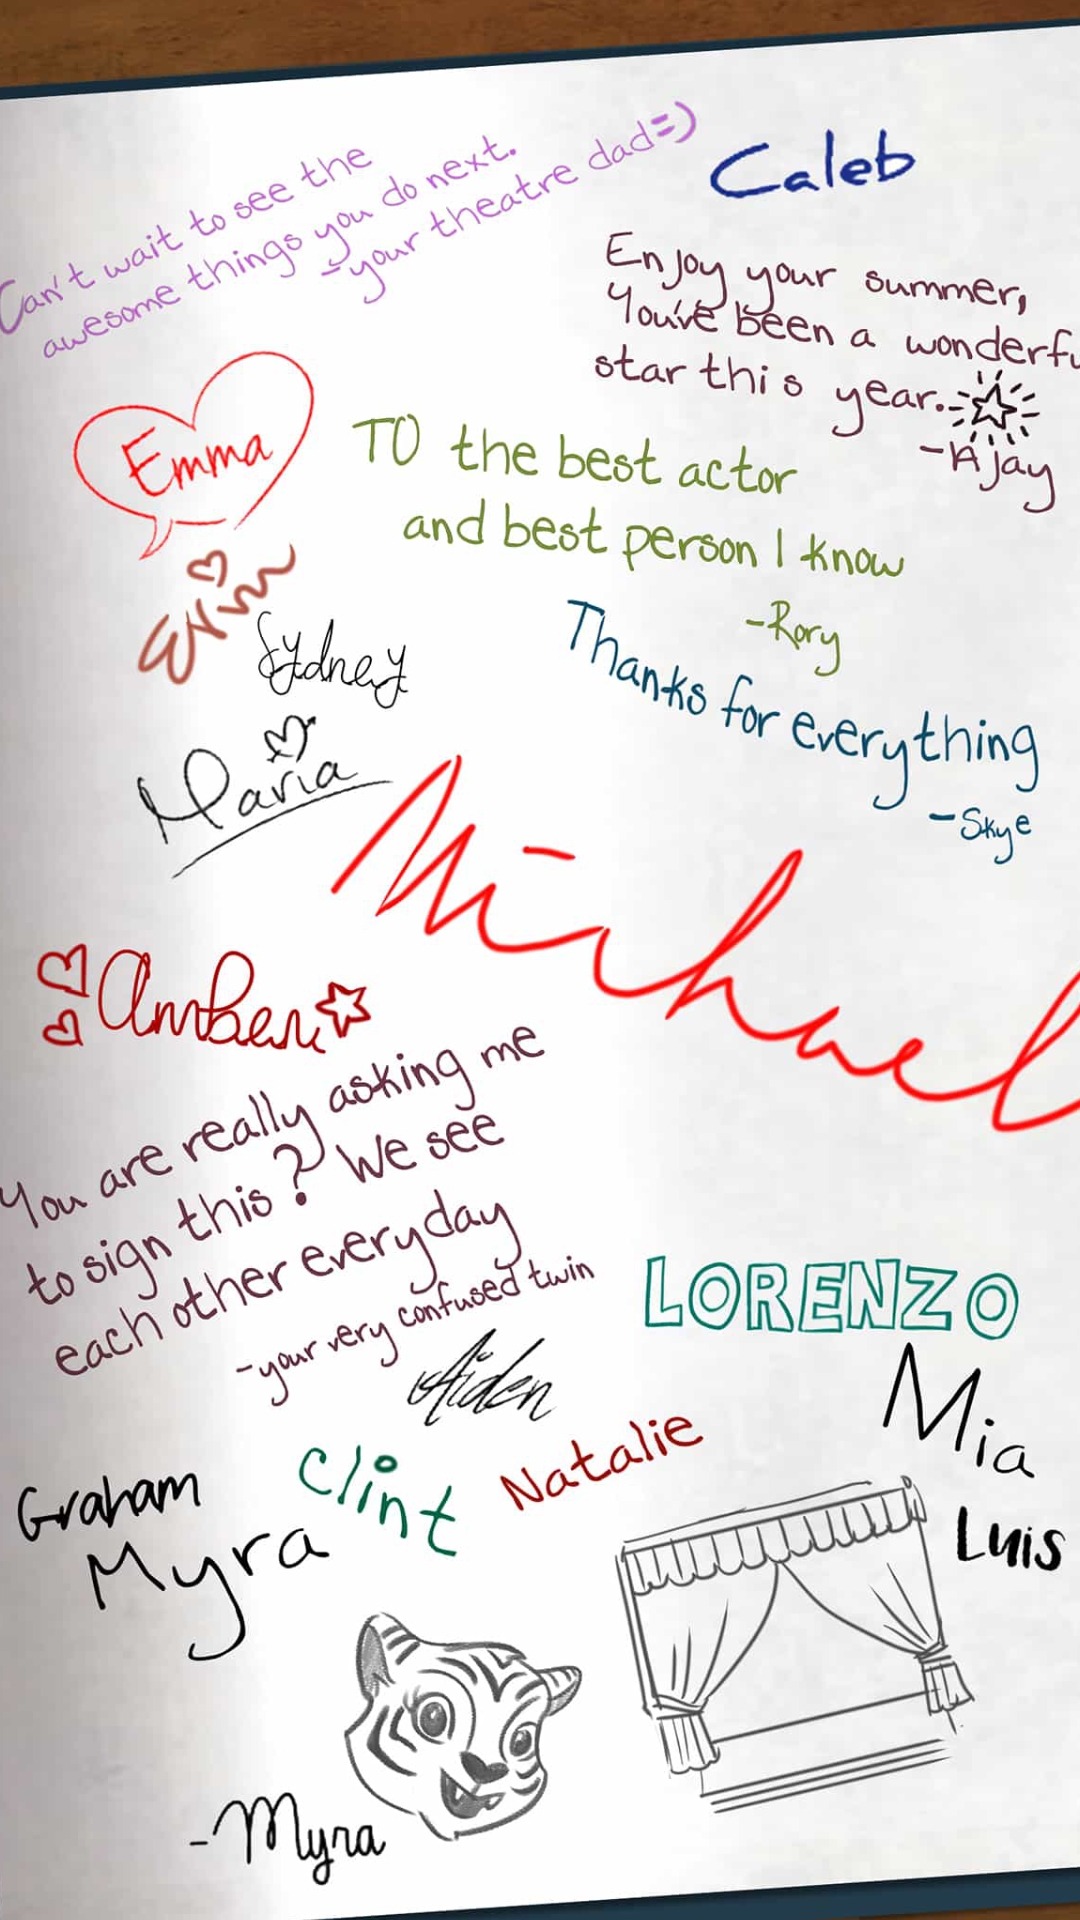 Can't wait to see the
awesome things you do next.
-your theatre dad=)
Caleb
Enjoy your summer,
You've been a wonderfu
star this year.
-Ajay
Emma
TO the best actor
and best person I know
-Rory
Erin
Sydney
Thanks for everything
-Skye
Maria
Michael
Amber
You are really asking me
to sign this? We see
each other everyday
-your very confused twin
Aiden
LORENZO
Mia
Graham
Clint
Natalie
Luis
Myra
-Myra